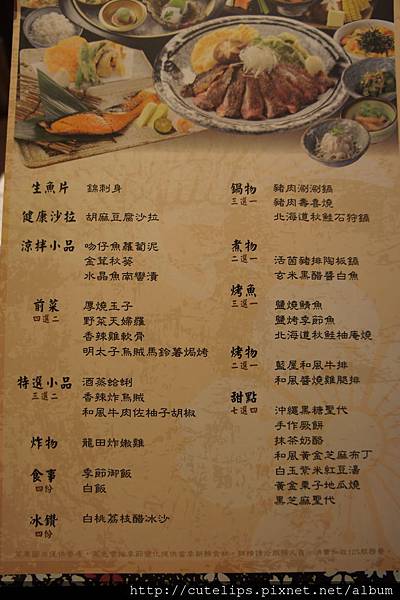 生魚片 錦刺身
健康沙拉 胡麻豆腐沙拉
涼拌小品 吻仔魚蘿蔔泥
金茸秋葵
水晶魚南蠻漬
前菜 厚燒玉子
四選二 野菜天婦羅
香辣雞軟骨
明太子烏賊馬鈴薯焗烤
特選小品 酒蒸蛤蜊
三選二 香辣炸烏賊
和風牛肉佐柚子胡椒
炸物 龍田炸嫩雞
食事 季節御飯
四份 白飯
冰鑽 白桃荔枝醋冰沙
四份
鍋物 豬肉涮涮鍋
三選一 豬肉壽喜燒
北海道秋鮭石狩鍋
煮物
二選一 活菌豬排陶板鍋
玄米黑醋醬白魚
烤魚 鹽燒鯖魚
三選一 鹽烤季節魚
北海道秋鮭柚庵燒
烤物 藍屋和風牛排
二選一 和風醬燒雞腿排
甜點
七選四 沖繩黑糖聖代
手作蕨餅
抹茶奶酪
和風黃金芝麻布丁
白玉紫米紅豆湯
黃金栗子地瓜燒
黑芝麻聖代
http://cutelips.pixnet.net/album